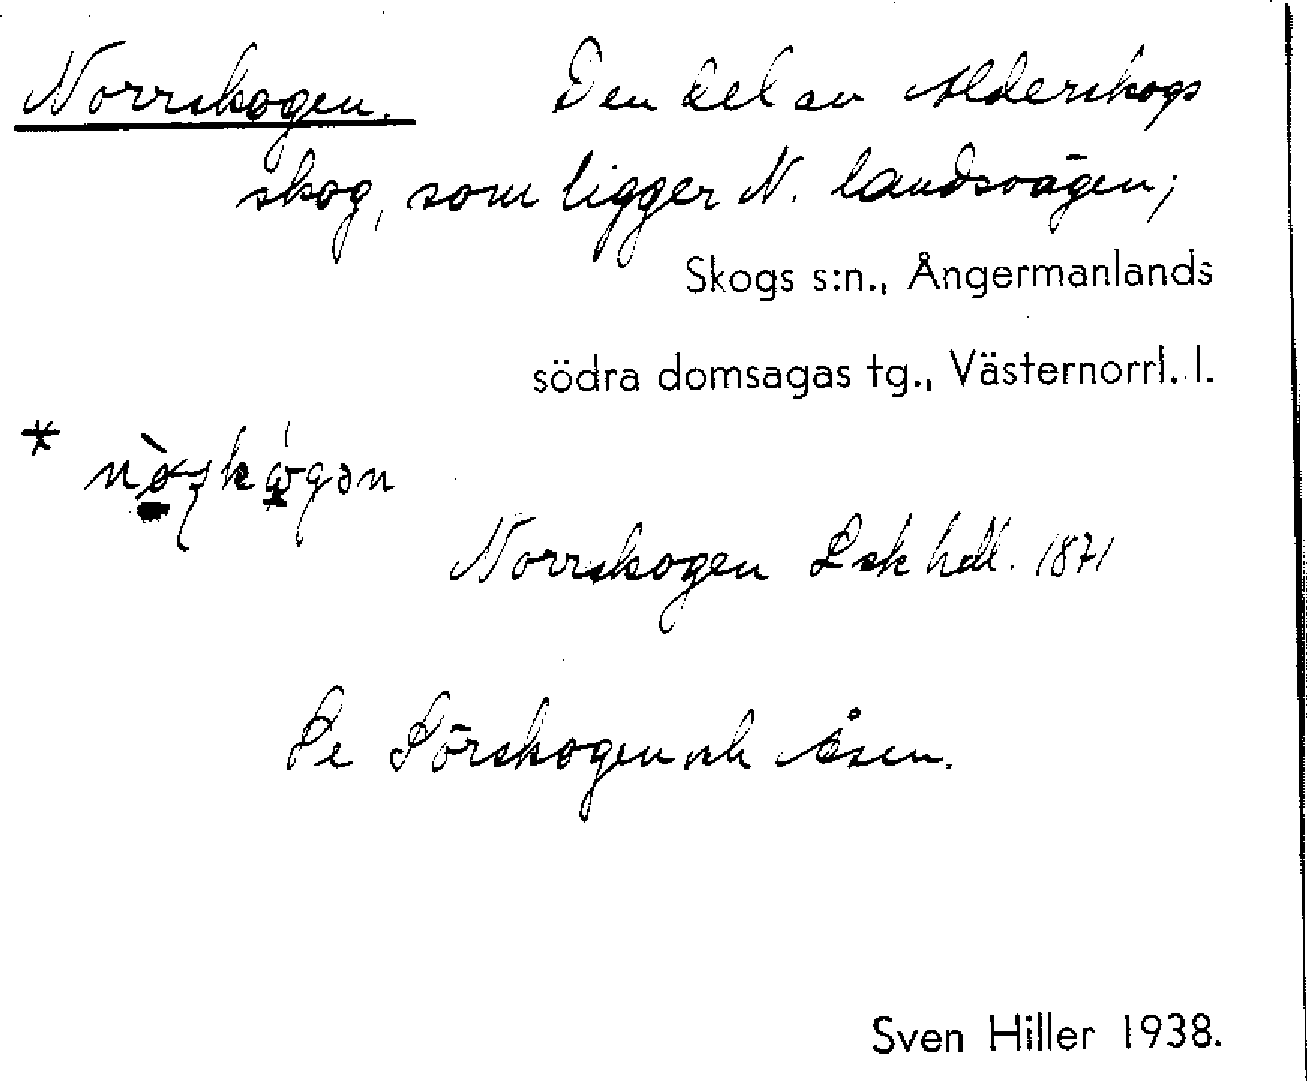 Norrskogen. Den del av Alderskogs
skog, som ligger N. landsvägen;
Skogs s:n., Ångermanlands
södra domsagas tg., Västernorrl. l.
Norrskogen Lsk hdl. 1871
Se Sörskogen och Åsen.
Sven Hiller 1938.